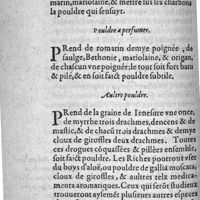 marin, mariolaine, & mettre sus les charbons
la pouldre qui sensuyt.
Pouldre a perfumer.
PRend de romarin demye poignée, de
saulge, Bethonie, mariolaine, & origan,
de chascun vne poignée: le tout soit fort batu
& pilé, & en soit faict pouldre subtile.
Aultre pouldre.
PRend de la graine de Ieneſure vne once,
de myrrhe trois drachmes, dencens & de
mastic, & de chascũ trois drachmes & demye
cloux de giroffles deux drachmes. Toutes
ces drogues cõquassées & pillées ensemble,
soit faict pouldre. Les Riches pourront vser
du boys d'aloë, ou pouldre de gallia moscata,
cloux de giroffles, & aultres telz medica-
mentz aromatiques. Ceux qui seront studieux
trouueront aysément plusieurs autres especes